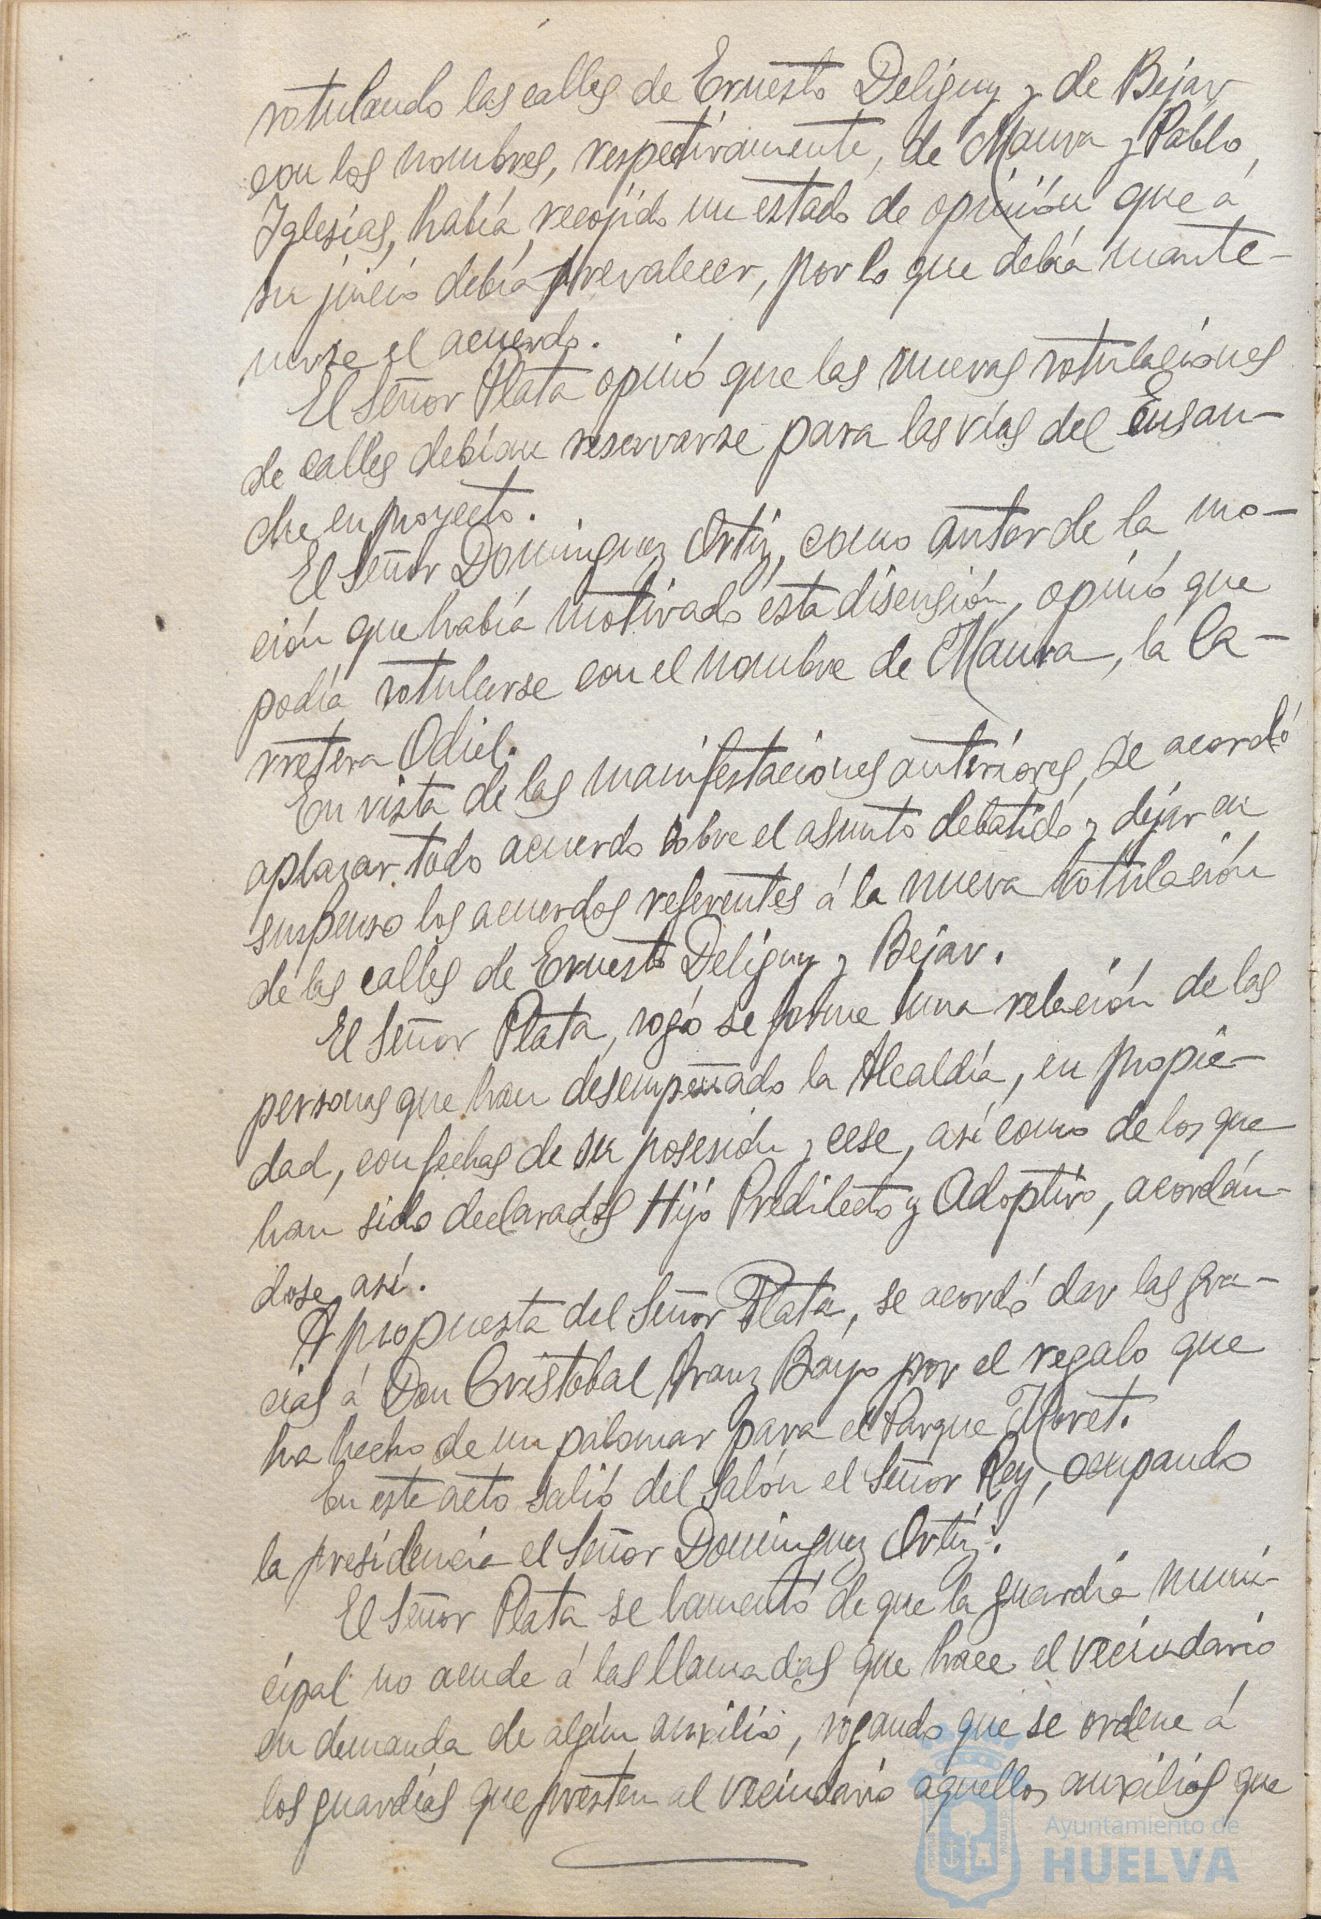 rotulando las calles de Ernesto Deligny y de Bejar
con los nombres, respectivamente, de Maura y Pablo
Iglesias, había recojido un estado de opinión que á
su juicio debía prevalecer, por lo que debía mante-
nerse el acuerdo.
El Señor Plata opinó que las nuevas rotulaciones
de calles debían reservarse para las vías del Ensan-
che en proyecto.
El Señor Dominguez Ortiz, como autor de la mo-
ción que había motivado esta discusión, opinó que
podía rotularse con el nombre de Maura, la Ca-
rretera Odiel.
En vista de las manifestaciones anteriores, se acordó
aplazar todo acuerdo sobre el asunto debatido y dejar en
suspenso los acuerdos referentes á la nueva rotulación
de las calles de Ernesto Deligny y Bejar.
El Señor Plata, rogó se forme una relación de las
personas que han desempeñado la Alcaldía, en propie-
dad, con fechas de su posesión y cese, así como de los que
han sido declarados Hijo Predilecto y Adoptivo, acordán-
dose así.
A propuesta del Señor Plata, se acordó dar las gra-
cias á Don Cristobal Bayo por el regalo que
ha hecho de un palomar para el Parque Moret.
En este acto salió del Salón el Señor Rey, ocupando
la presidencia el Señor Dominguez Ortiz.
El Señor Plata se lamentó de que la guardia muni-
cipal no acude á las llamadas que hace el vecindario
en demanda de algún auxilio, rogando que se ordene á
los guardias que presten al vecindario aquellos auxilios que
Ayuntamiento de
HUELVA